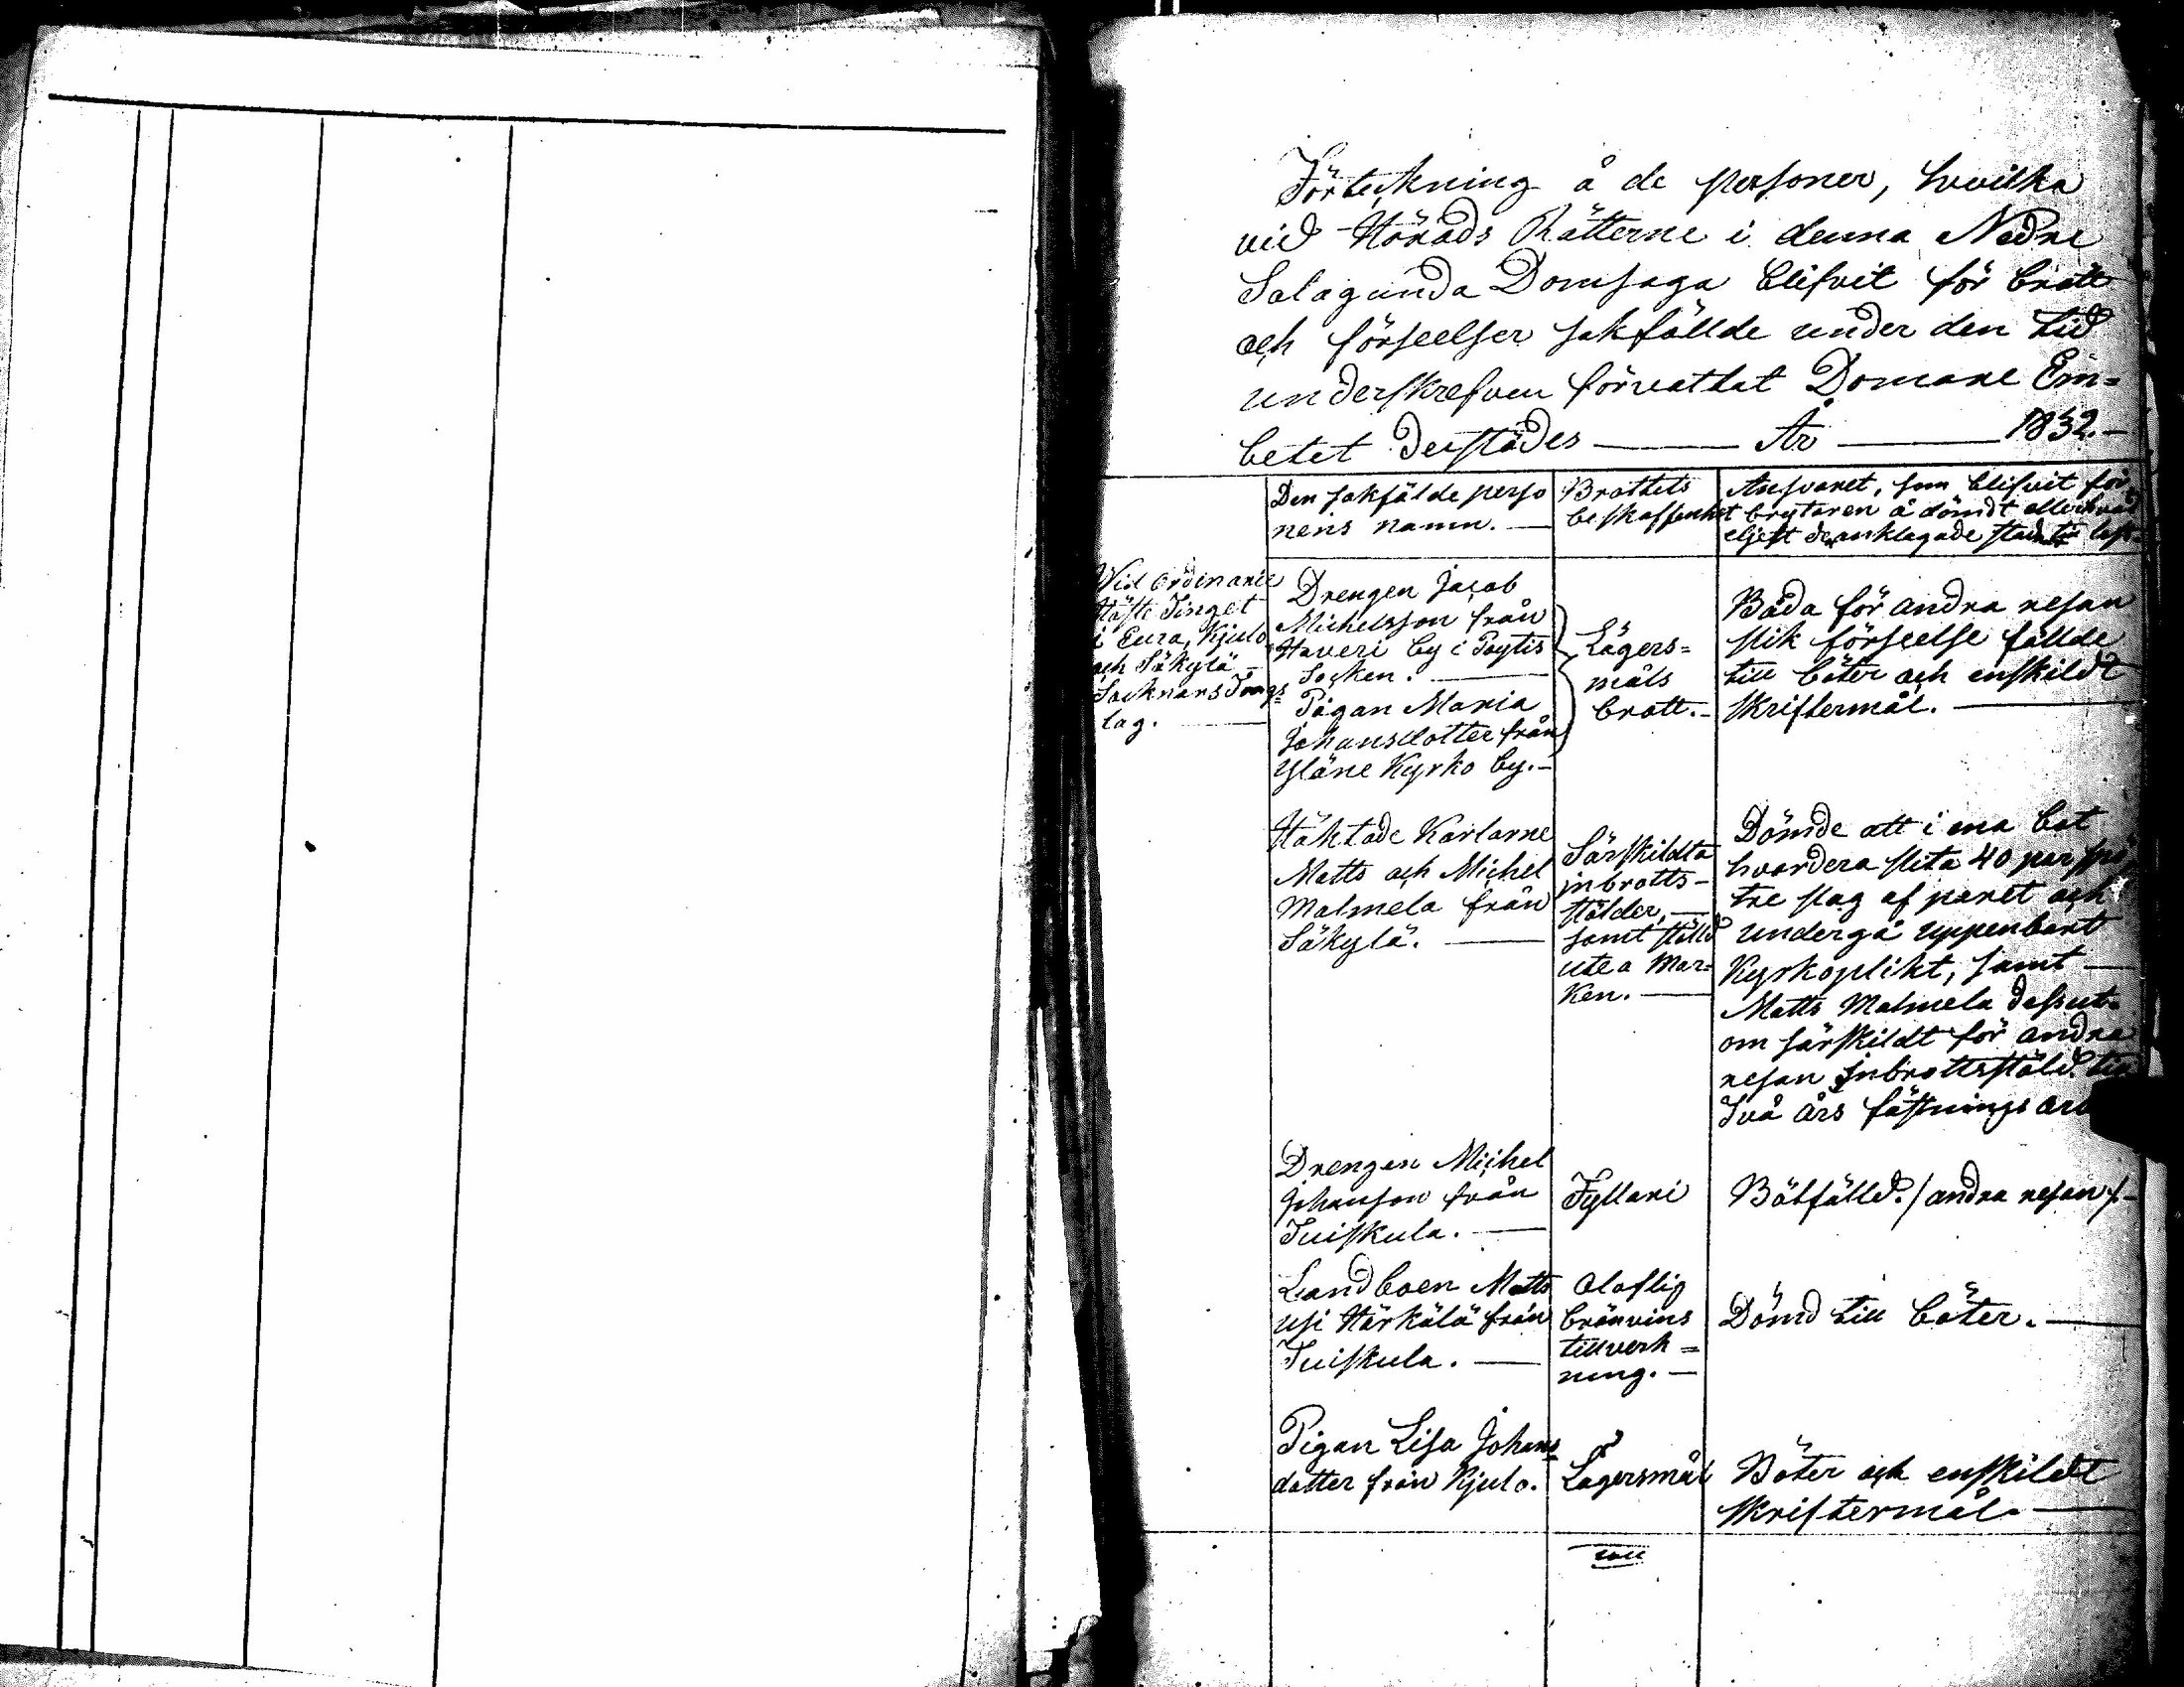 Förteckning å de personer, hvilka
vid Härads Rätterne i denna Nedre
Satagunda Domsaga blifvit för brott
och förseelser sakfällde under den tid
underskrefven förvattat Domare Em=
betet derstädes — År — 1832.—
Den sakfälde perso
nens namn. —
Brottets
beskaffenhet
Ansvaret, som blifvit för
brytaren å dömdt eller hvad
eljest de anklagade
Vid Ordinarie
Höste Tinget
i Eura, Kjulo
och Säkylä —
Socknars Tings
lag. —
Drengen Jacob
Michelsson från
Haveri by i Pöytis
Socken. —
Pigan Maria
Johansdotter från
Yläne Kyrko by.—
Lägers=
måls
brott.—
Båda för andra resan
slik förseelse fällde
till böter och enskildt
skriftermål. —
Häktade Karlarne
Matts och Michel
Malmela från
Säkylä. —
Särskildta
inbrotts—
stölder, —
samt stöld
ute a mar=
ken. —
Dömde att i ena bot
hvardera slita 40 par spö
tre slag af paret och
undergå uppenbart
Kyrkoplikt, samt —
Matts Malmela dessut=
om särskildt för andre
resan Inbrottsstöld till
Två års fästnings arb
Drengen Michel
Johansson från
Tuiskula. —
Fylleri
Bötfälld. / andra resan /.—
Landboen Matts
Usi Härkälä från
Tuiskula. —
Olaflig
bränvins
tillverk=
ning. —
Dömd till böter. —
Pigan Lisa Johans
dotter från Kjulo.
Lägersmål
Böter och enskildt
skriftermål. —